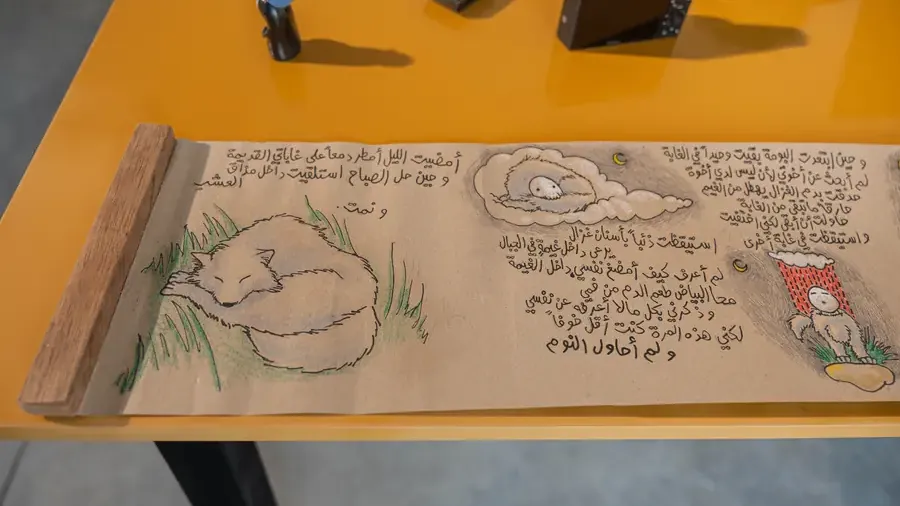 و حين ابتعدت البومة بقيت وحيداً في الغابة
لم أبحث عن أخوتي لأن ليس لدي أخوة
حدقت بدم الغزال يهطل من الغيم
حارقاً ما تبقى من الغابة
حاولت أن أبقى لكني اختفيت
واستيقظت في غابة أخرى
استيقظت ذئباً بأسنان غزال
يرعى داخل غيمةٍ في الجبال
لم أعرف كيف أمضغ نفسي داخل الغيمة
محا البياض طعم الدم من فمي
و ذكرني بكل ما لا أعرفه عن نفسي
لكني هذه المرة كنت أقل خوفاً
و لم أحاول النوم
أمضيت الليل أمطر دمعاً على غاباتي القديمة
و حين حل الصباح استلقيت داخل مذاق العشب
و نمت.